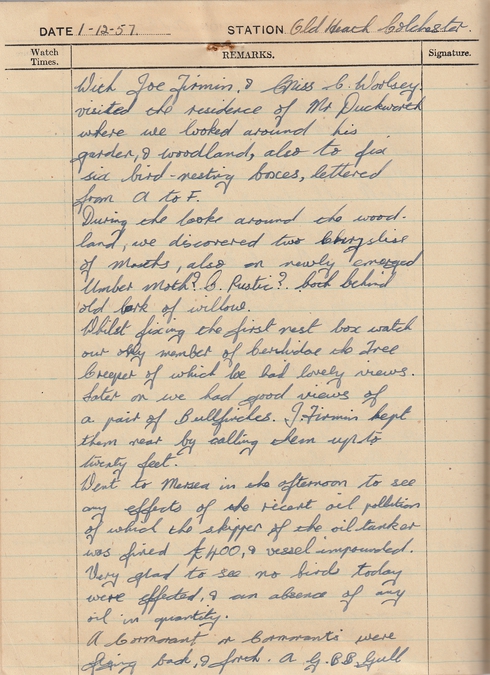 DATE 1-12-57. STATION Old Heath Colchester.
Watch Times. REMARKS. Signature.
With Joe Firmin, & Miss C. Woolsey.
visited the residence of Mr Duckworth
where we looked around his
garden, & woodland, also to fix
six bird-nesting boxes, lettered
from A to F.
During the looke around the wood-
land, we discovered two Chryslise
of Moths, also an newly emerged
Umber Moth? C. Rustic? both behind
old bark of willow.
Whilst fixing the first nest box watch
our only member of Certhidae the Tree
Creeper of which we had lovely views.
Later on we had good views of
a pair of Bullfinches. J. Firmin kept
them near by calling them up to
twenty feet.
Went to Mersea in the afternoon to see
any effects of the recent oil pollution
of which the skipper of the oil tanker
was fined £400, & vessel impounded.
Very glad to see no birds today
were effected, & an absence of any
oil in quantity.
A Cormorant or Cormorants were
flying back, & forth. A G.B.B. Gull